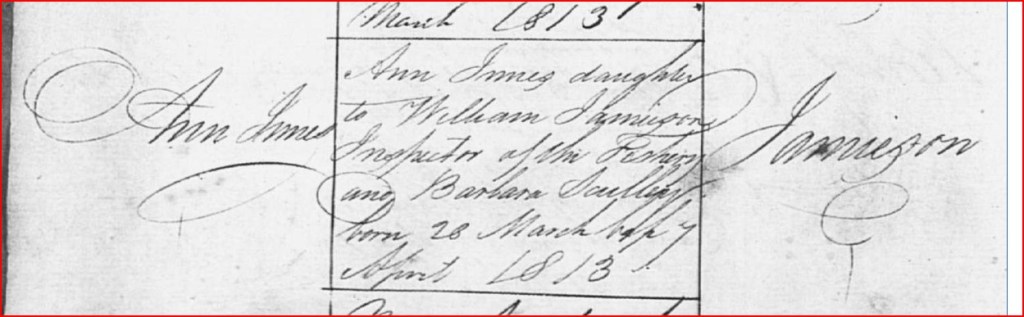 March 1813
Ann Innes daughter
Ann Innes to William Jamieson Jamieson
Inspector of the Fishery
and Barbara
born 28 March bap 7
April 1813